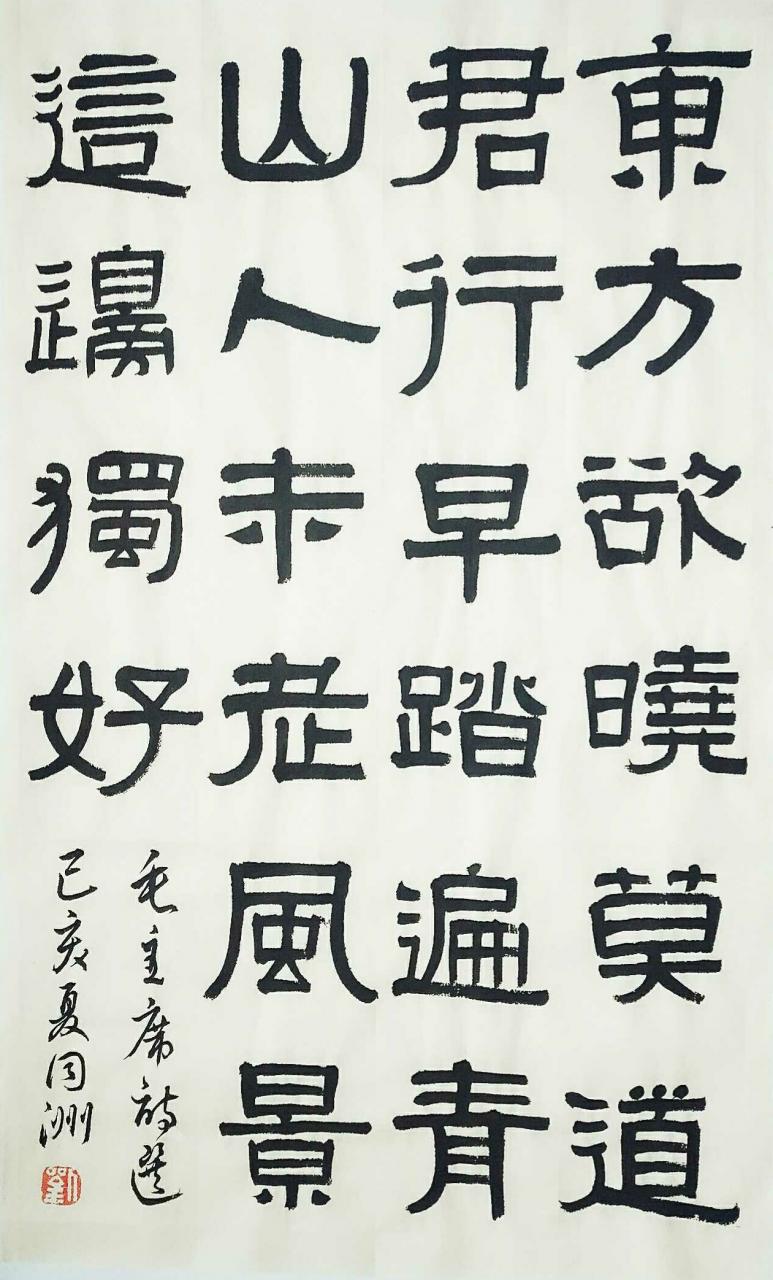 東方欲曉莫道
君行早踏遍青
山人未老風景
這邊獨好
毛主席詩選
己亥夏同洲
劉